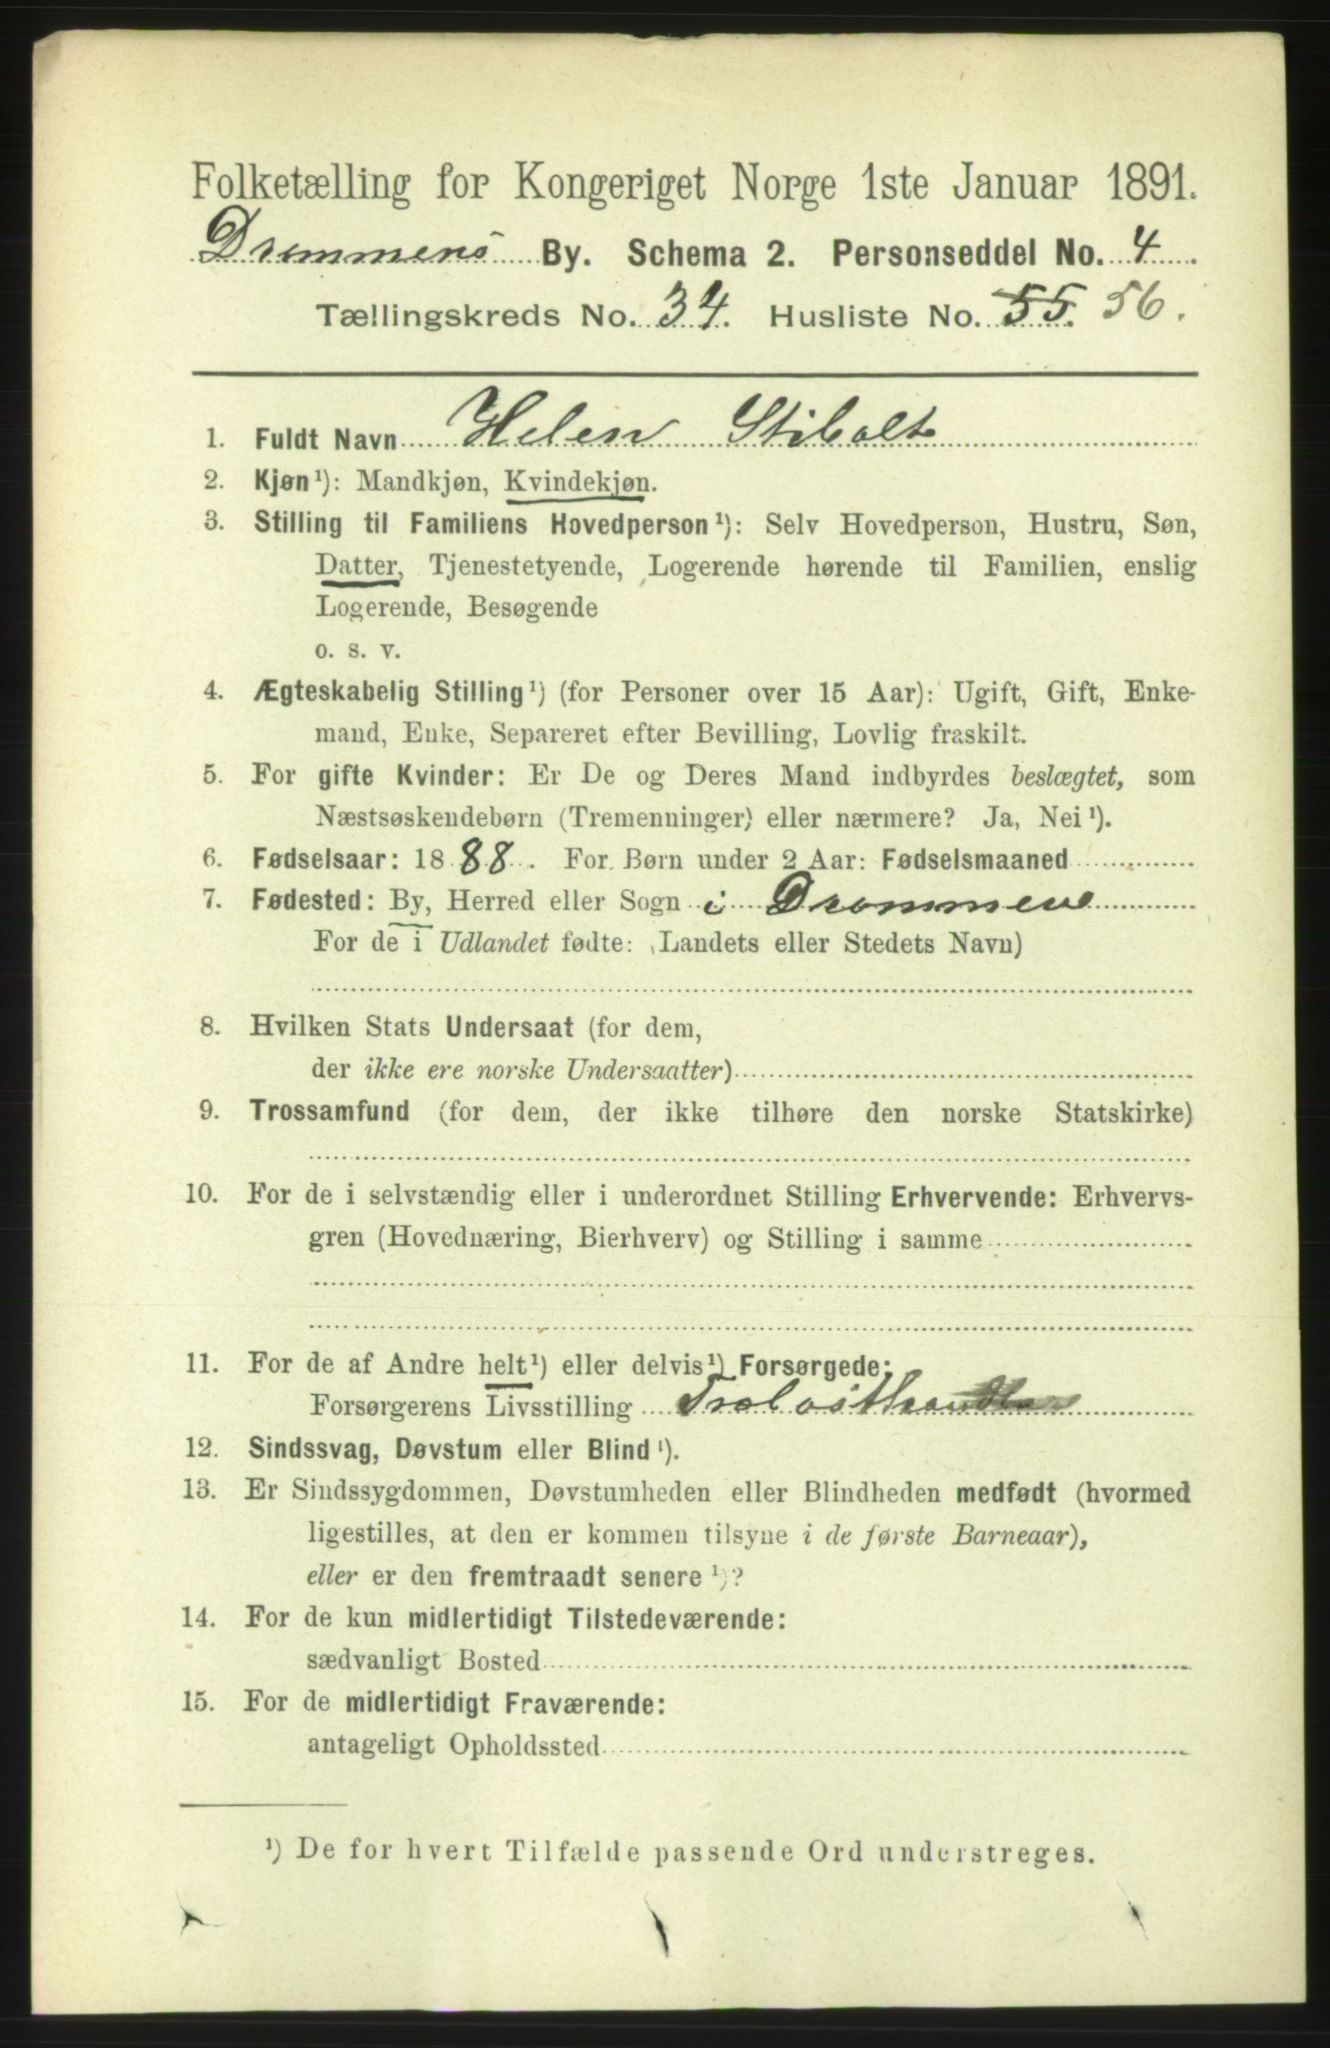 Folketælling for Kongeriget Norge 1ste Januar 1891.
Drammens By. Schema 2. Personseddel No. 4.
Tællingskreds No. 34. Husliste No. 55. 56.
1. Fuldt Navn Helen Stibolt
2. Kjøn ¹): Mandkjøn, Kvindekjøn.
3. Stilling til Familiens Hovedperson ¹): Selv Hovedperson, Hustru, Søn,
Datter, Tjenestetyende, Logerende hørende til Familien, enslig
Logerende, Besøgende
o. s. v.
4. Ægteskabelig Stilling ¹) (for Personer over 15 Aar): Ugift, Gift, Enke-
mand, Enke, Separeret efter Bevilling, Lovlig fraskilt.
5. For gifte Kvinder: Er De og Deres Mand indbyrdes beslægtet, som
Næstsøskendebørn (Tremenninger) eller nærmere? Ja, Nei ¹).
6. Fødselsaar: 1888. For Børn under 2 Aar: Fødselsmaaned
7. Fødested: By, Herred eller Sogn i Drammen
For de i Udlandet fødte: (Landets eller Stedets Navn)
8. Hvilken Stats Undersaat (for dem,
der ikke ere norske Undersaatter)
9. Trossamfund (for dem, der ikke tilhøre den norske Statskirke)
10. For de i selvstændig eller i underordnet Stilling Erhvervende: Erhvervs-
gren (Hovednæring, Bierhverv) og Stilling i samme
11. For de af Andre helt ¹) eller delvis ¹) Forsørgede:
Forsørgerens Livsstilling Trælasthandler
12. Sindssvag, Døvstum eller Blind ¹).
13. Er Sindssygdommen, Døvstumheden eller Blindheden medfødt (hvormed
ligestilles, at den er kommen tilsyne i de første Barneaar),
eller er den fremtraadt senere ¹)?
14. For de kun midlertidigt Tilstedeværende:
sædvanligt Bosted
15. For de midlertidigt Fraværende:
antageligt Opholdssted
¹) De for hvert Tilfælde passende Ord understreges.